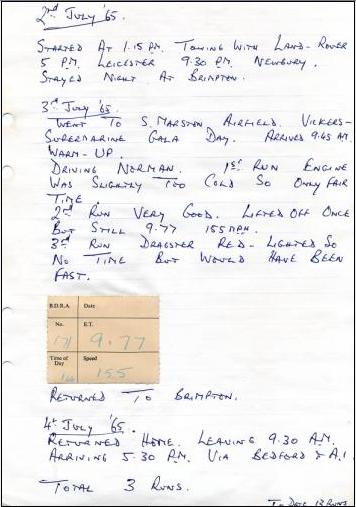 2nd July '65.
Started At 1.15 P.M. Towing With Land-Rover
5 P.M. Leicester 9.30 P.M. Newbury.
Stayed Night At Brimpton.
3rd July '65
Went To S. Marston Airfield. Vickers-
Supermarine Gala Day. Arrived 9.45 AM.
Warm-Up.
Driving Norman. 1st Run Engine
Was Slightly Too Cold So Only Fair
Time.
2nd Run Very Good. Lifted Off Once
But Still 9.77 155 M.P.H.
3rd Run Dragster Red-Lighted So
No Time But Would Have Been
Fast.
B.D.R.A. Date
No. E.T.
171 9.77
Time of Day Speed
155
Returned To Brimpton.
4th July '65.
Returned Home. Leaving 9.30 A.M.
Arriving 5.30 P.M. Via Bedford & A.1.
Total 3 Runs.
To Date 13 Runs